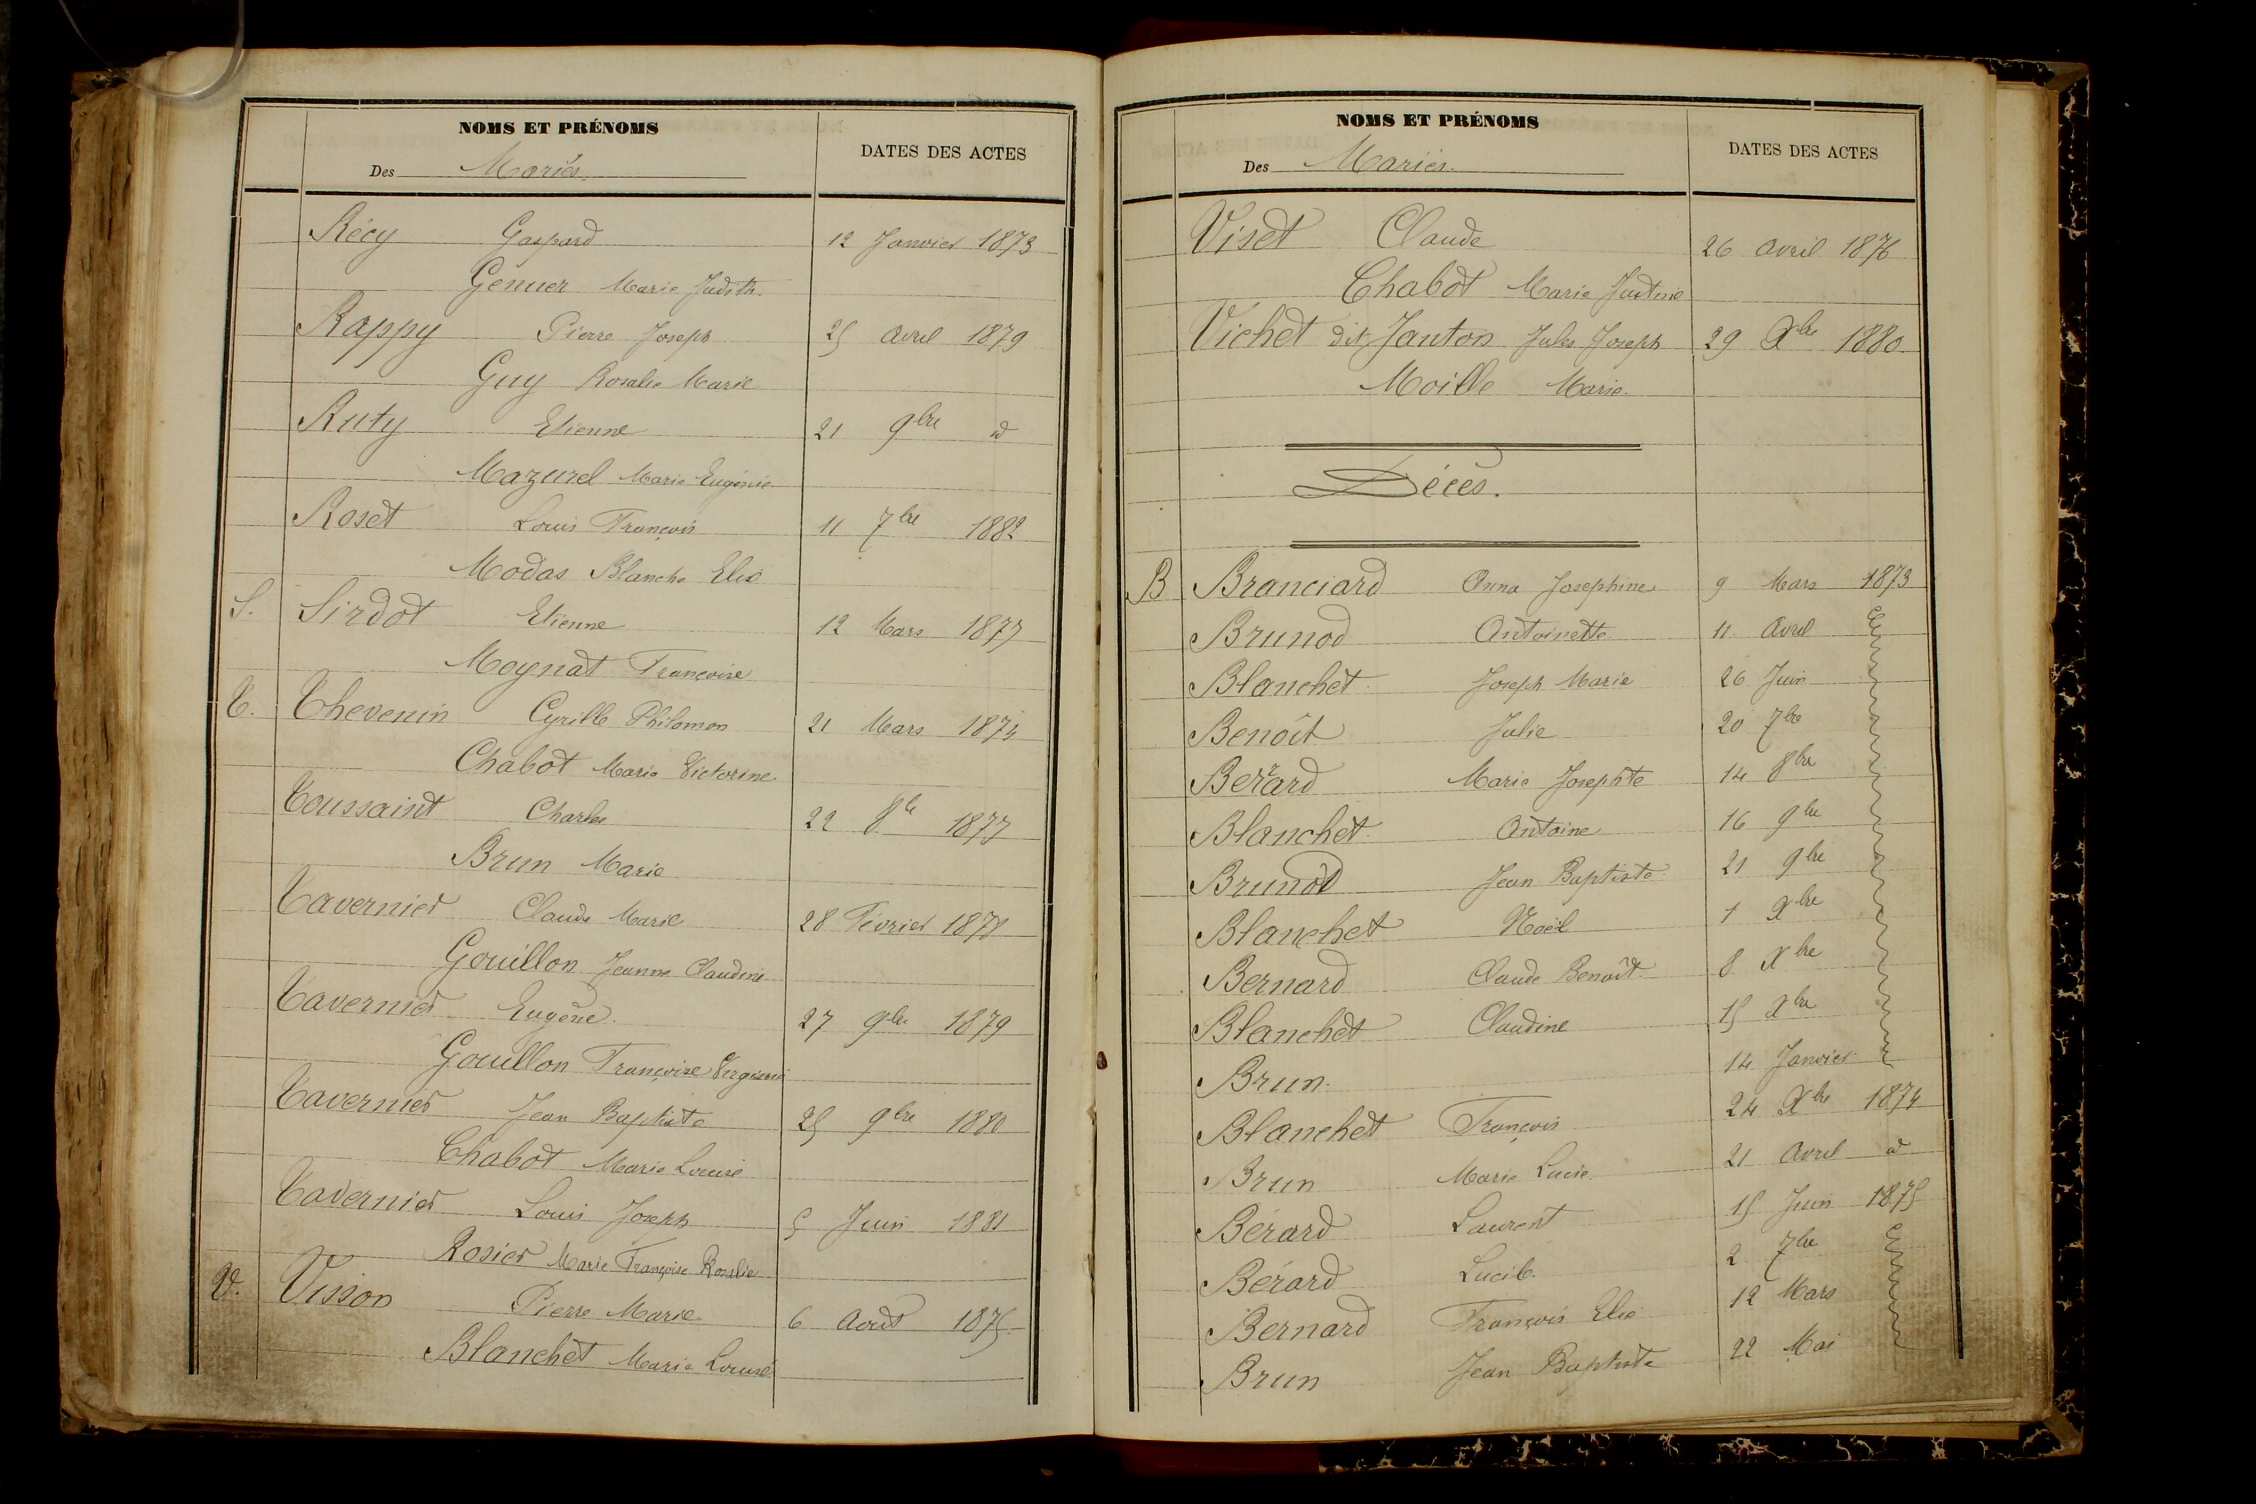 NOMS ET PRÉNOMS
DATES DES ACTES
Des Mariés.
Récy Gaspard 12 Janvier 1873
Genuer Marie Judith.
Rappy Pierre Joseph 25 avril 1879
Guy Rosalie Marie
Ruty Etienne 21 9bre d
Mazurel Marie Eugénie
Roset Louis François 11 7bre 1882
Modas Blanche Elis
S. Sirdot Etienne 12 Mars 1877
Moynat Françoise
T. Thevenin Cyrille Philomon 21 Mars 1874
Chabot Marie Victorine
Toussaint Charles 22 8bre 1877
Brun Marie
Tavernier Claude Marie 28 Février 1878
Gouillon Jeanne Claudine
Tavernier Eugène 27 9bre 1879
Gouillon Françoise Virginie
Tavernier Jean Baptiste 25 9bre 1880
Chabot Marie Louise
Tavernier Louis Joseph 5 Juin 1881
Rosier Marie Françoise Rosalie
V. Visson Pierre Marie 6 Aout 1875
Blanchet Marie Louise
NOMS ET PRÉNOMS
DATES DES ACTES
Des Mariés.
Viset Claude 26 avril 1876
Chabot Marie Justine
Vichet dit Janton Jules Joseph 29 Xbre 1880
Moille Marie.
Décès.
B Branciard Anna Josephine 9 Mars 1873
Brunod Antoinette 11 Avril
Blanchet Joseph Marie 26 Juin
Benoît Julie 20 7bre
Berard Marie Josephte 14 8bre
Blanchet Antoine 16 9bre
Brunod Jean Baptiste 21 9bre
Blanchet Noël 1 Xbre
Bernard Claude Benoît 8 Xbre
Blanchet Claudine 15 Xbre
Brun. 14 Janvier
Blanchet François 24 Xbre 1874
Brun Marie Lucie 21 Avril d
Bérard Laurent 15 Juin 1875
Bérard Lucile 2 7bre
Bernard François Elis 12 Mars
Brun Jean Baptiste 22 Mai